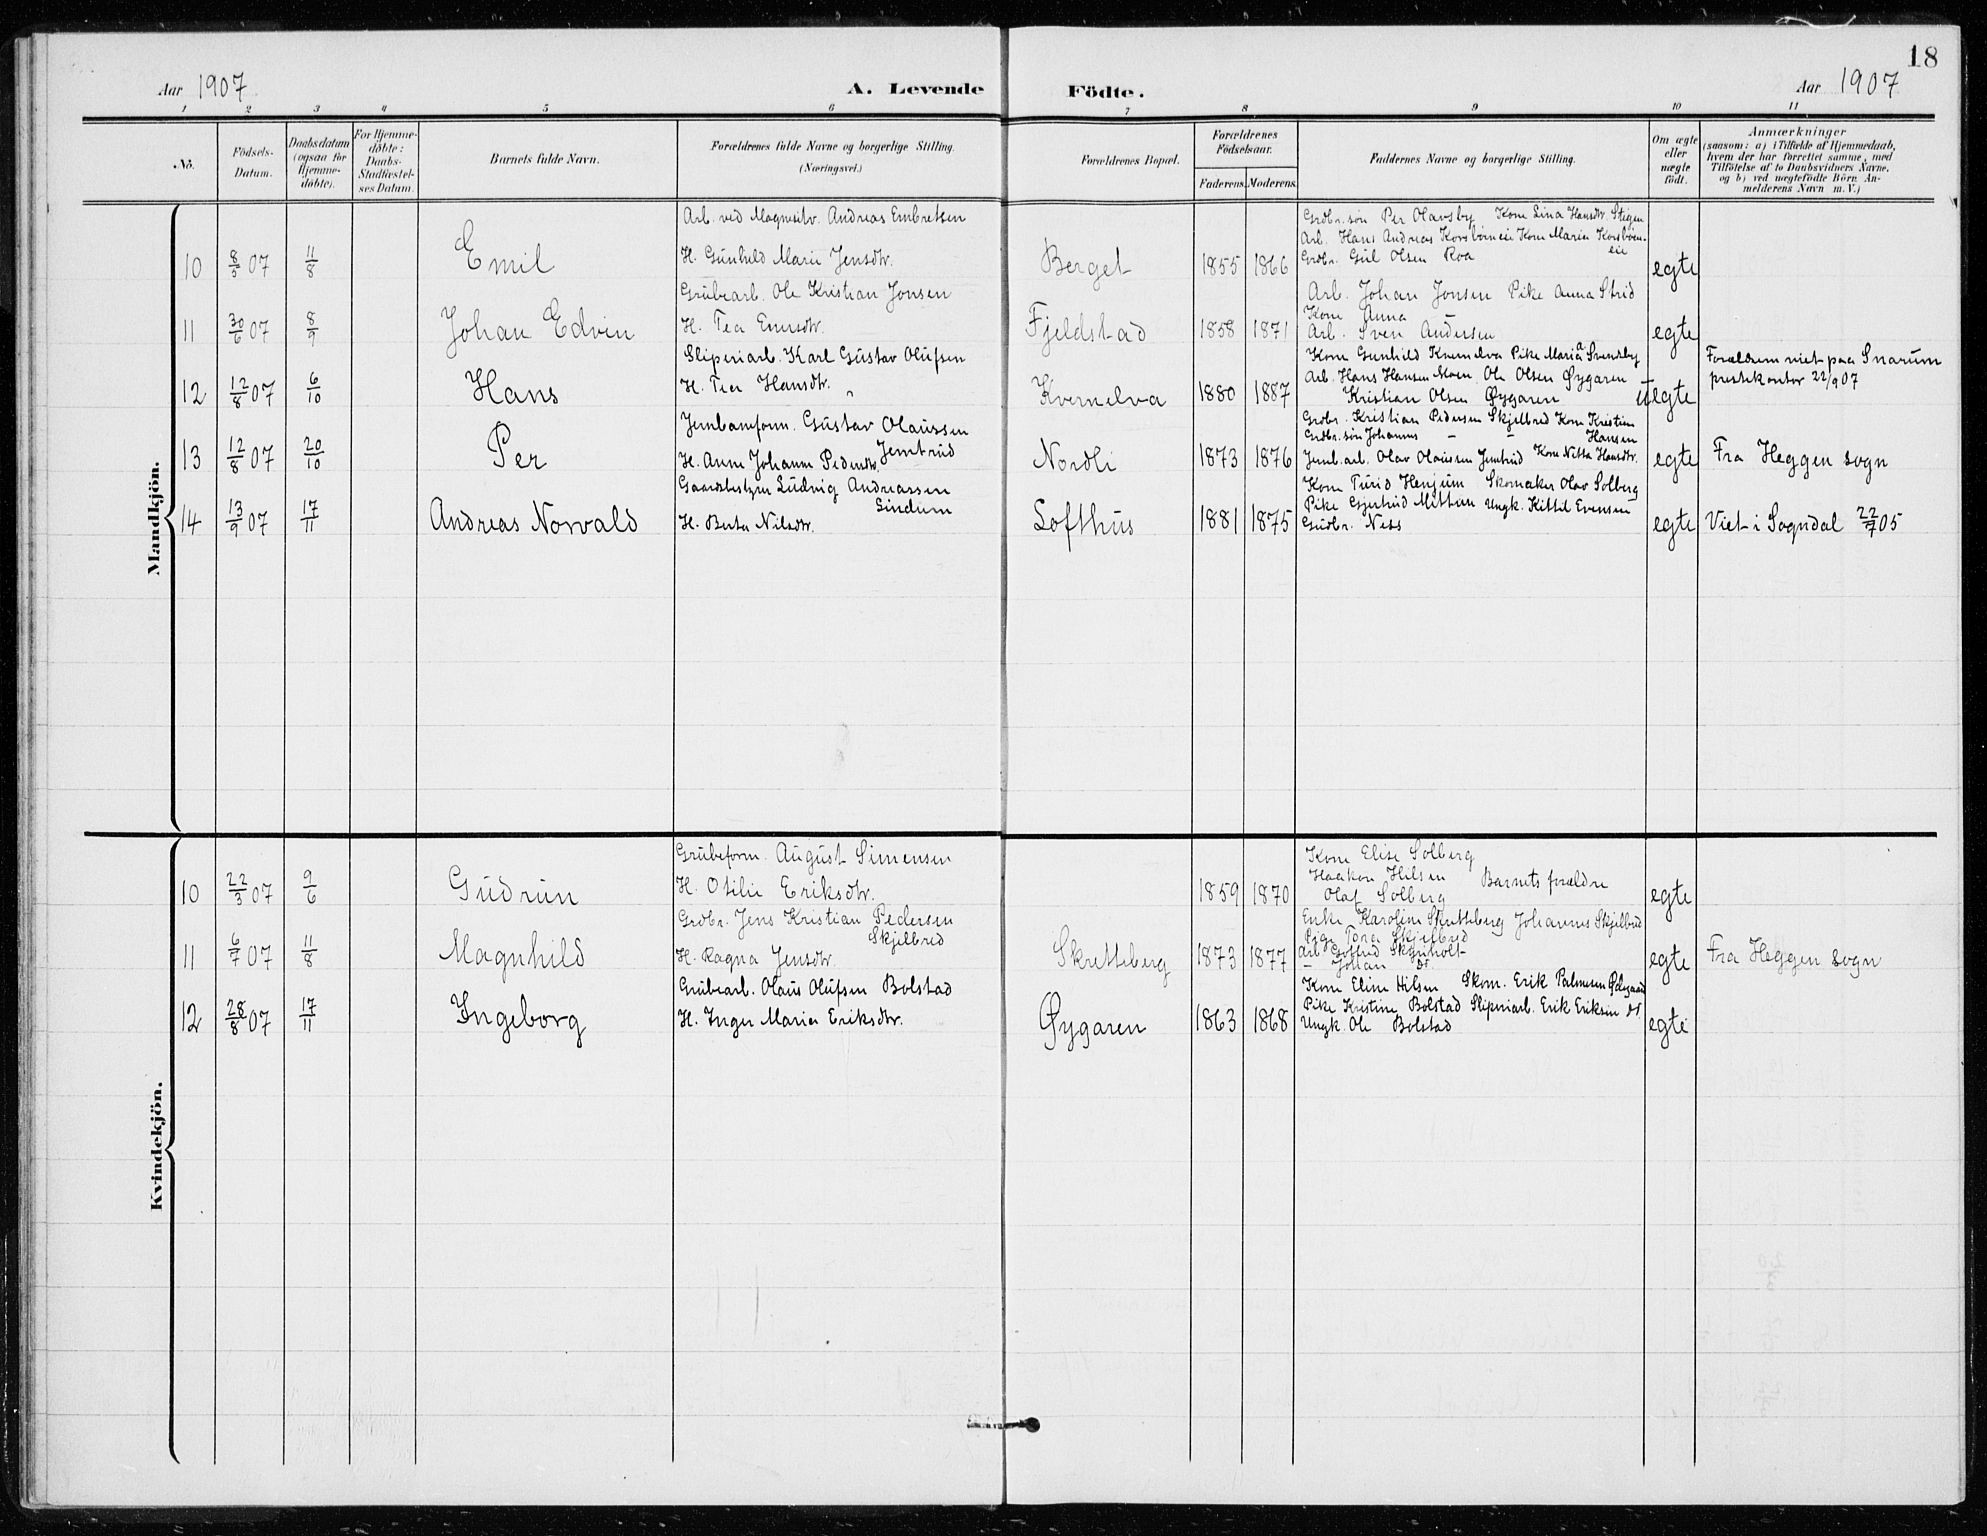 18
Aar 1907 A. Levende Födte. Aar 1907
1 2 3 4 5 6 7 8 9 10 11
Nö.
Födsels-Datum.
Daabsdatum (ogsaa for Hjemme-döbte).
For Hjemme-döbte: Daabs-Stadfæstel-ses Datum.
Barnets fulde Navn.
Forældrenes fulde Navne og borgerlige Stilling. (Næringsvei.)
Forældrenes Bopæl.
Forældrenes Födselsaar.
Faderens. Moderens.
Faddernes Navne og borgerlige Stilling.
Om ægte eller uægte födt.
Anmærkninger
(saasom: a) i Tilfælde af Hjemmedaab, hvem der har forrettet samme, med Tilföielse af to Daabsvidners Navne, og b) ved uægtefödte Börn An-melderens Navn m. V.)
Mandkjön.
Arb. ved Magnesitv. Andreas Embretsen
Grdbr. søn Per Olavsby Kone Lina Hansdtr. Stigen
Arb. Hans Andreas Korsbøneie Kone Maria Korsbøen-eie
10 8/5 07 11/8 Emil H. Gunhild Marie Jensdtr. Berget 1855 1866 Grdbr. Gul Olsen Roa egte
Grubearb. Ole Kristian Jonsen
Arb. Johan Jonsen Pike Anna Strid
Kone Anna
11 30/6 07 8/9 Johan Edvin H. Tea Enersdtr. Fjeldstad 1858 1871 Arb. Sven Andersen egte
Sliperiarb. Karl Gustav Olufsen
Kone Gunhild Kvernelva Pike Maria Svendsby
Arb. Hans Hansen Moen Ole Olsen Øygaren
12 12/8 07 6/10 Hans H. Tea Hansdtr. Kvernelva 1880 1887 Kristian Olsen Øygaren uegte
Forældrene viet paa Snarum
prestekontor 22/9 07
Jernbaneform. Gustav Olaussen
Jemtrud
Grdbr. Kristian Pedersen Skjelbred Kone Kristine
Grdbr. søn Johannes - - Hansen
13 12/8 07 20/10 Per H. Anne Johanne Pedersdtr. Nordli 1873 1876 Jernb. arb. Olav Olaussen Jemtrud Kone Netta Hansdtr. egte Fra Heggen sogn
Gaardbestyrer Ludvig Andreassen
Lindum
Kone Turid Henjum Skomaker Olav Solberg
Pike Gjertrud Mittun Ungk. Kittil Evensen
14 13/9 07 17/11 Andreas Norvald H. Berta Nilsdtr. Lofthus 1881 1875 Gudbr. Ness egte Viet i Sogndal 22/7 05
Kvindekjön.
Grubeform. August Simensen
Kone Elise Solberg
Haakon Hilsen Barnets forældre
10 22/3 07 9/6 Gudrun H. Otilie Eriksdtr. 1859 1870 Olaf Solberg egte
Grdbr. Jens Kristian Pedersen
Skjelbred
Enke Karoline Skretteberg Johannes Skjelbred
Pige Tora Skjelbred
11 6/7 07 11/8 Magnhild H. Ragna Jensdtr. Skretteberg 1873 1877 Arb. Gotfred Skjønholt egte Fra Heggen sogn
- Johan ds.
Grubearb. Olaus Olufsen Bolstad
Kone Eline Hilsen Skom. Erik Palmesen Ødegaard
Pike Kristine Bolstad Sliperiarb. Erik Eriksen ds.
12 28/8 07 17/11 Ingeborg H. Inger Marie Eriksdtr. Øygaren 1863 1868 Ungk. Ole Bolstad egte